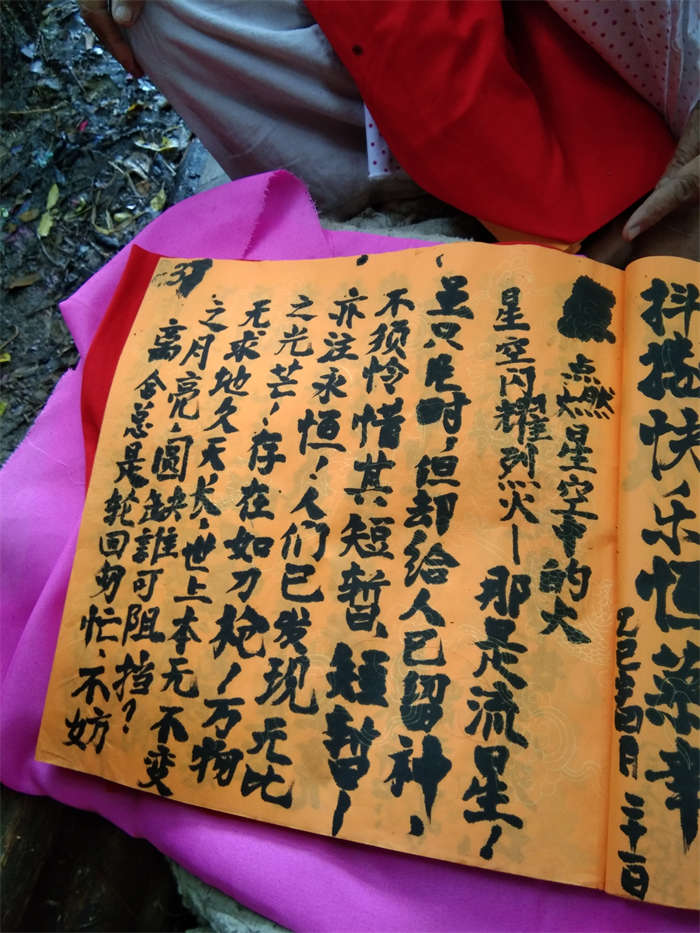 抖擞快乐恒荣幸
四月二十一日
点燃星空中的火
星空闪耀烈火—那是流星！
虽只片时，但却给人已留神，
不须怜惜其短暂、短暂！
亦注永恒！人们已发现无比
之光芒！存在如刀枪！万物
无求地久天长、世上本无不变
之月亮、圆缺誰可阻挡？
离舍总是轮回匆忙、不妨